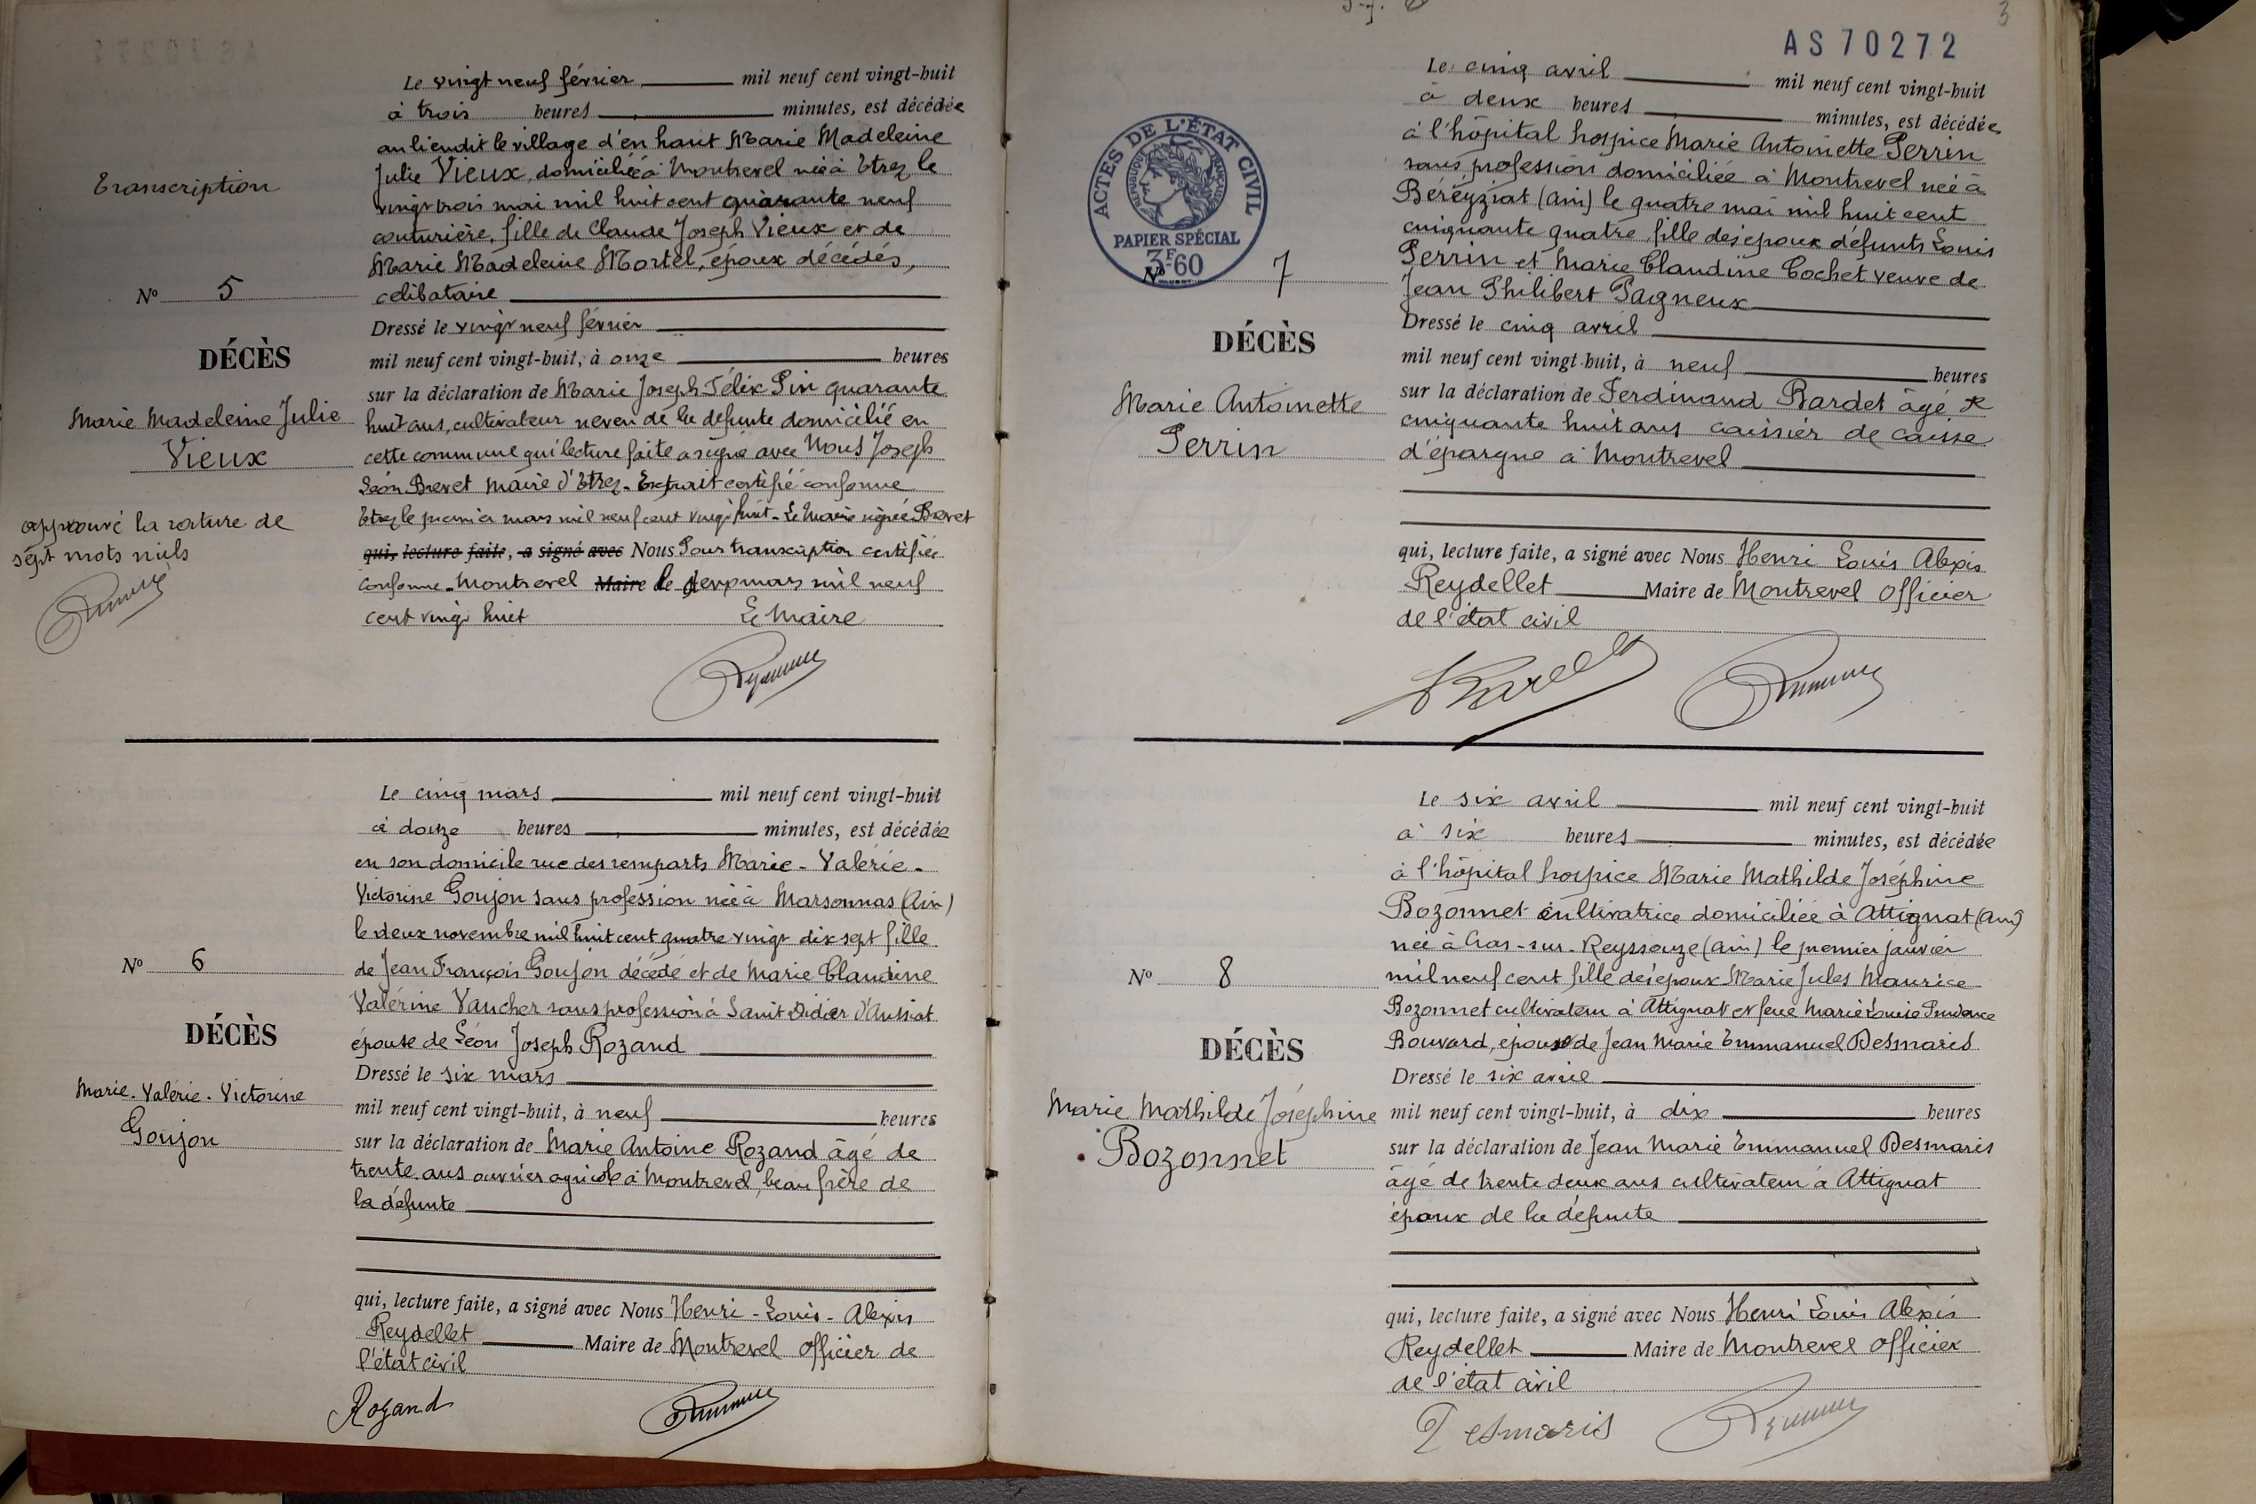 Transcription
N° 5
DÉCÈS
Marie Madeleine Julie
Vieux
approuvé la rature de
sept mots nuls
Le vingt neuf février mil neuf cent vingt-huit
à trois heures minutes, est décédée
au lieudit le village d'en haut Marie Madeleine
Julie Vieux, domiciliée à Montrevel née à Etrez le
vingt trois mai mil huit cent quarante neuf
couturière, fille de Claude Joseph Vieux et de
Marie Madeleine Mortel, époux décédés,
célibataire
Dressé le vingt neuf février
mil neuf cent vingt-huit, à onze heures
sur la déclaration de Marie Joseph Félix Pin quarante
huit ans, cultivateur neveu de la défunte domicilié en
cette commune qui lecture faite a signé avec Nous Joseph
Léon Brevet Maire d'Etrez. Extrait certifié conforme
Etrez le premier mars mil neuf cent vingt huit. Le Maire signé Brevet
qui, lecture faite, a signé avec Nous Pour transcription certifiée
conforme. Montrevel Maire le deux mars mil neuf
cent vingt huit Le Maire
N° 6
DÉCÈS
Marie. Valérie. Victorine
Goujon
Le cinq mars mil neuf cent vingt-huit
à douze heures minutes, est décédée
en son domicile rue des remparts Marie - Valérie -
Victorine Goujon sans profession née à Marsonnas (Ain)
le deux novembre mil huit cent quatre vingt dix sept fille
de Jean François Goujon décédé et de Marie Claudine
Valérine Vaucher sans profession à Saint Didier d'Aussiat
épouse de Léon Joseph Rozand
Dressé le six mars
mil neuf cent vingt-huit, à neuf heures
sur la déclaration de Marie Antoine Rozand âgé de
trente ans ouvrier agricole à Montrevel, beau frère de
la défunte
qui, lecture faite, a signé avec Nous Henri - Louis - Alexis
Reydellet Maire de Montrevel Officier de
l'état civil
Rozand
3
AS 70272
ACTES DE L'ÉTAT CIVIL
RÉPUBLIQUE FRANÇAISE
PAPIER SPÉCIAL
3F60
N° 7
DÉCÈS
Marie Antoinette
Perrin
Le cinq avril mil neuf cent vingt-huit
à deux heures minutes, est décédée
à l'hôpital hospice Marie Antoinette Perrin
sans profession domiciliée à Montrevel née à
Beréyziat (Ain) le quatre mai mil huit cent
cinquante quatre fille des époux défunts Louis
Perrin et Marie Claudine Cochet veuve de
Jean Philibert Pagneux
Dressé le cinq avril
mil neuf cent vingt-huit, à neuf heures
sur la déclaration de Ferdinand Bardet âgé de
cinquante huit ans caissier de caisse
d'épargne à Montrevel
qui, lecture faite, a signé avec Nous Henri Louis Alexis
Reydellet Maire de Montrevel Officier
de l'état civil
N° 8
DÉCÈS
Marie Mathilde Joséphine
Bozonnet
Le six avril mil neuf cent vingt-huit
à six heures minutes, est décédée
à l'hôpital hospice Marie Mathilde Joséphine
Bozonnet cultivatrice domiciliée à Attignat (Ain)
née à Cras-sur-Reyssouze (Ain) le premier janvier
mil neuf cent fille des époux Marie Jules Maurice
Bozonnet cultivateur à Attignat et feue Marie Louise Prudence
Bouvard, épouse de Jean Marie Emmanuel Desmaris
Dressé le six avril
mil neuf cent vingt-huit, à dix heures
sur la déclaration de Jean Marie Emmanuel Desmaris
âgé de trente deux ans cultivateur à Attignat
époux de la défunte
qui, lecture faite, a signé avec Nous Henri Louis Alexis
Reydellet Maire de Montrevel Officier
de l'état civil
Desmaris